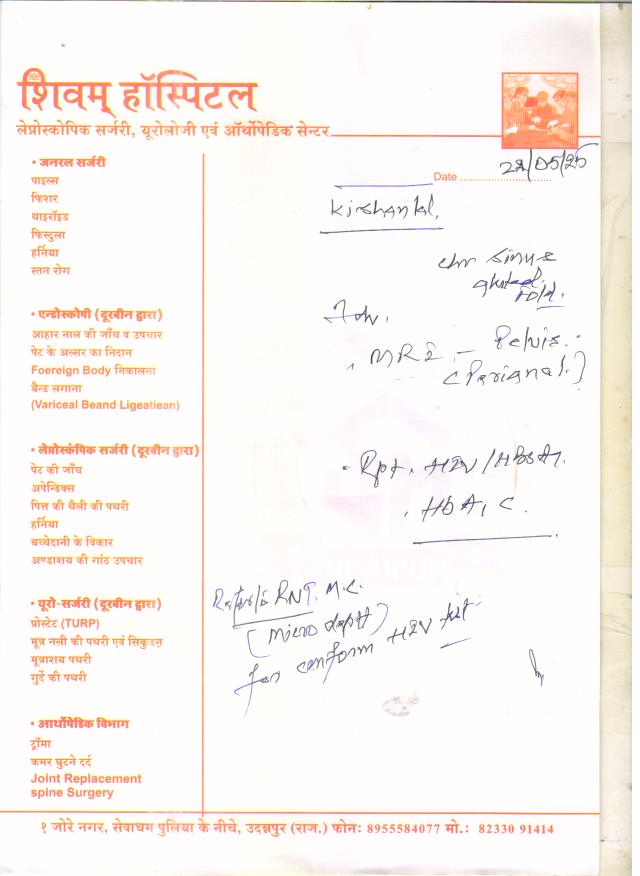 शिवम् हॉस्पिटल
लेप्रोस्कोपिक सर्जरी, यूरोलोजी एवं ऑर्थोपेडिक सेन्टर
Date 22/05/25
• जनरल सर्जरी
पाइल्स
फिशर
थाइरॉइड
फिस्टुला
हर्निया
स्तन रोग
• एन्डोस्कोपी (दूरबीन द्वारा)
आहार नाल की जाँच व उपचार
पेट के अल्सर का निदान
Foereign Body निकालना
बैन्ड लगाना
(Variceal Beand Ligeatiean)
• लेप्रोस्कंपिक सर्जरी (दूरबीन द्वारा)
पेट की जाँच
अपेन्डिक्स
पित्त की थैली की पथरी
हर्निया
बच्चेदानी के विकार
अण्डाशय की गांठ उपचार
• यूरो-सर्जरी (दूरबीन द्वारा)
प्रोस्टेट (TURP)
मूत्र नली की पथरी एवं सिकुडन
मूत्राशय पथरी
गुर्दे की पथरी
• आर्थोपेडिक विभाग
ट्रॉमा
कमर घुटने दर्द
Joint Replacement
spine Surgery
Kishanlal.
Adv.
MRI - Pelvis.
(Perianal.)
• Rpt. HIV / HBSAg.
. HbA1c.
RNT. M.C.
(Micro deptt)
for conform HIV test
१ जोरे नगर, सेवाधम पुलिया के नीचे, उदयपुर (राज.) फोनः 8955584077 मो.: 82330 91414